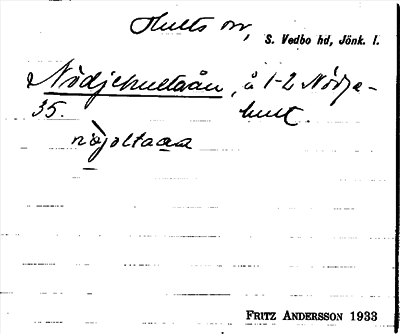 Hults sn, S. Vedbo hd, Jönk. l.
Nödjehultaån, å 1-2 Nödje-
35. hult.
nöjoltaaa
FRITZ ANDERSSON 1933